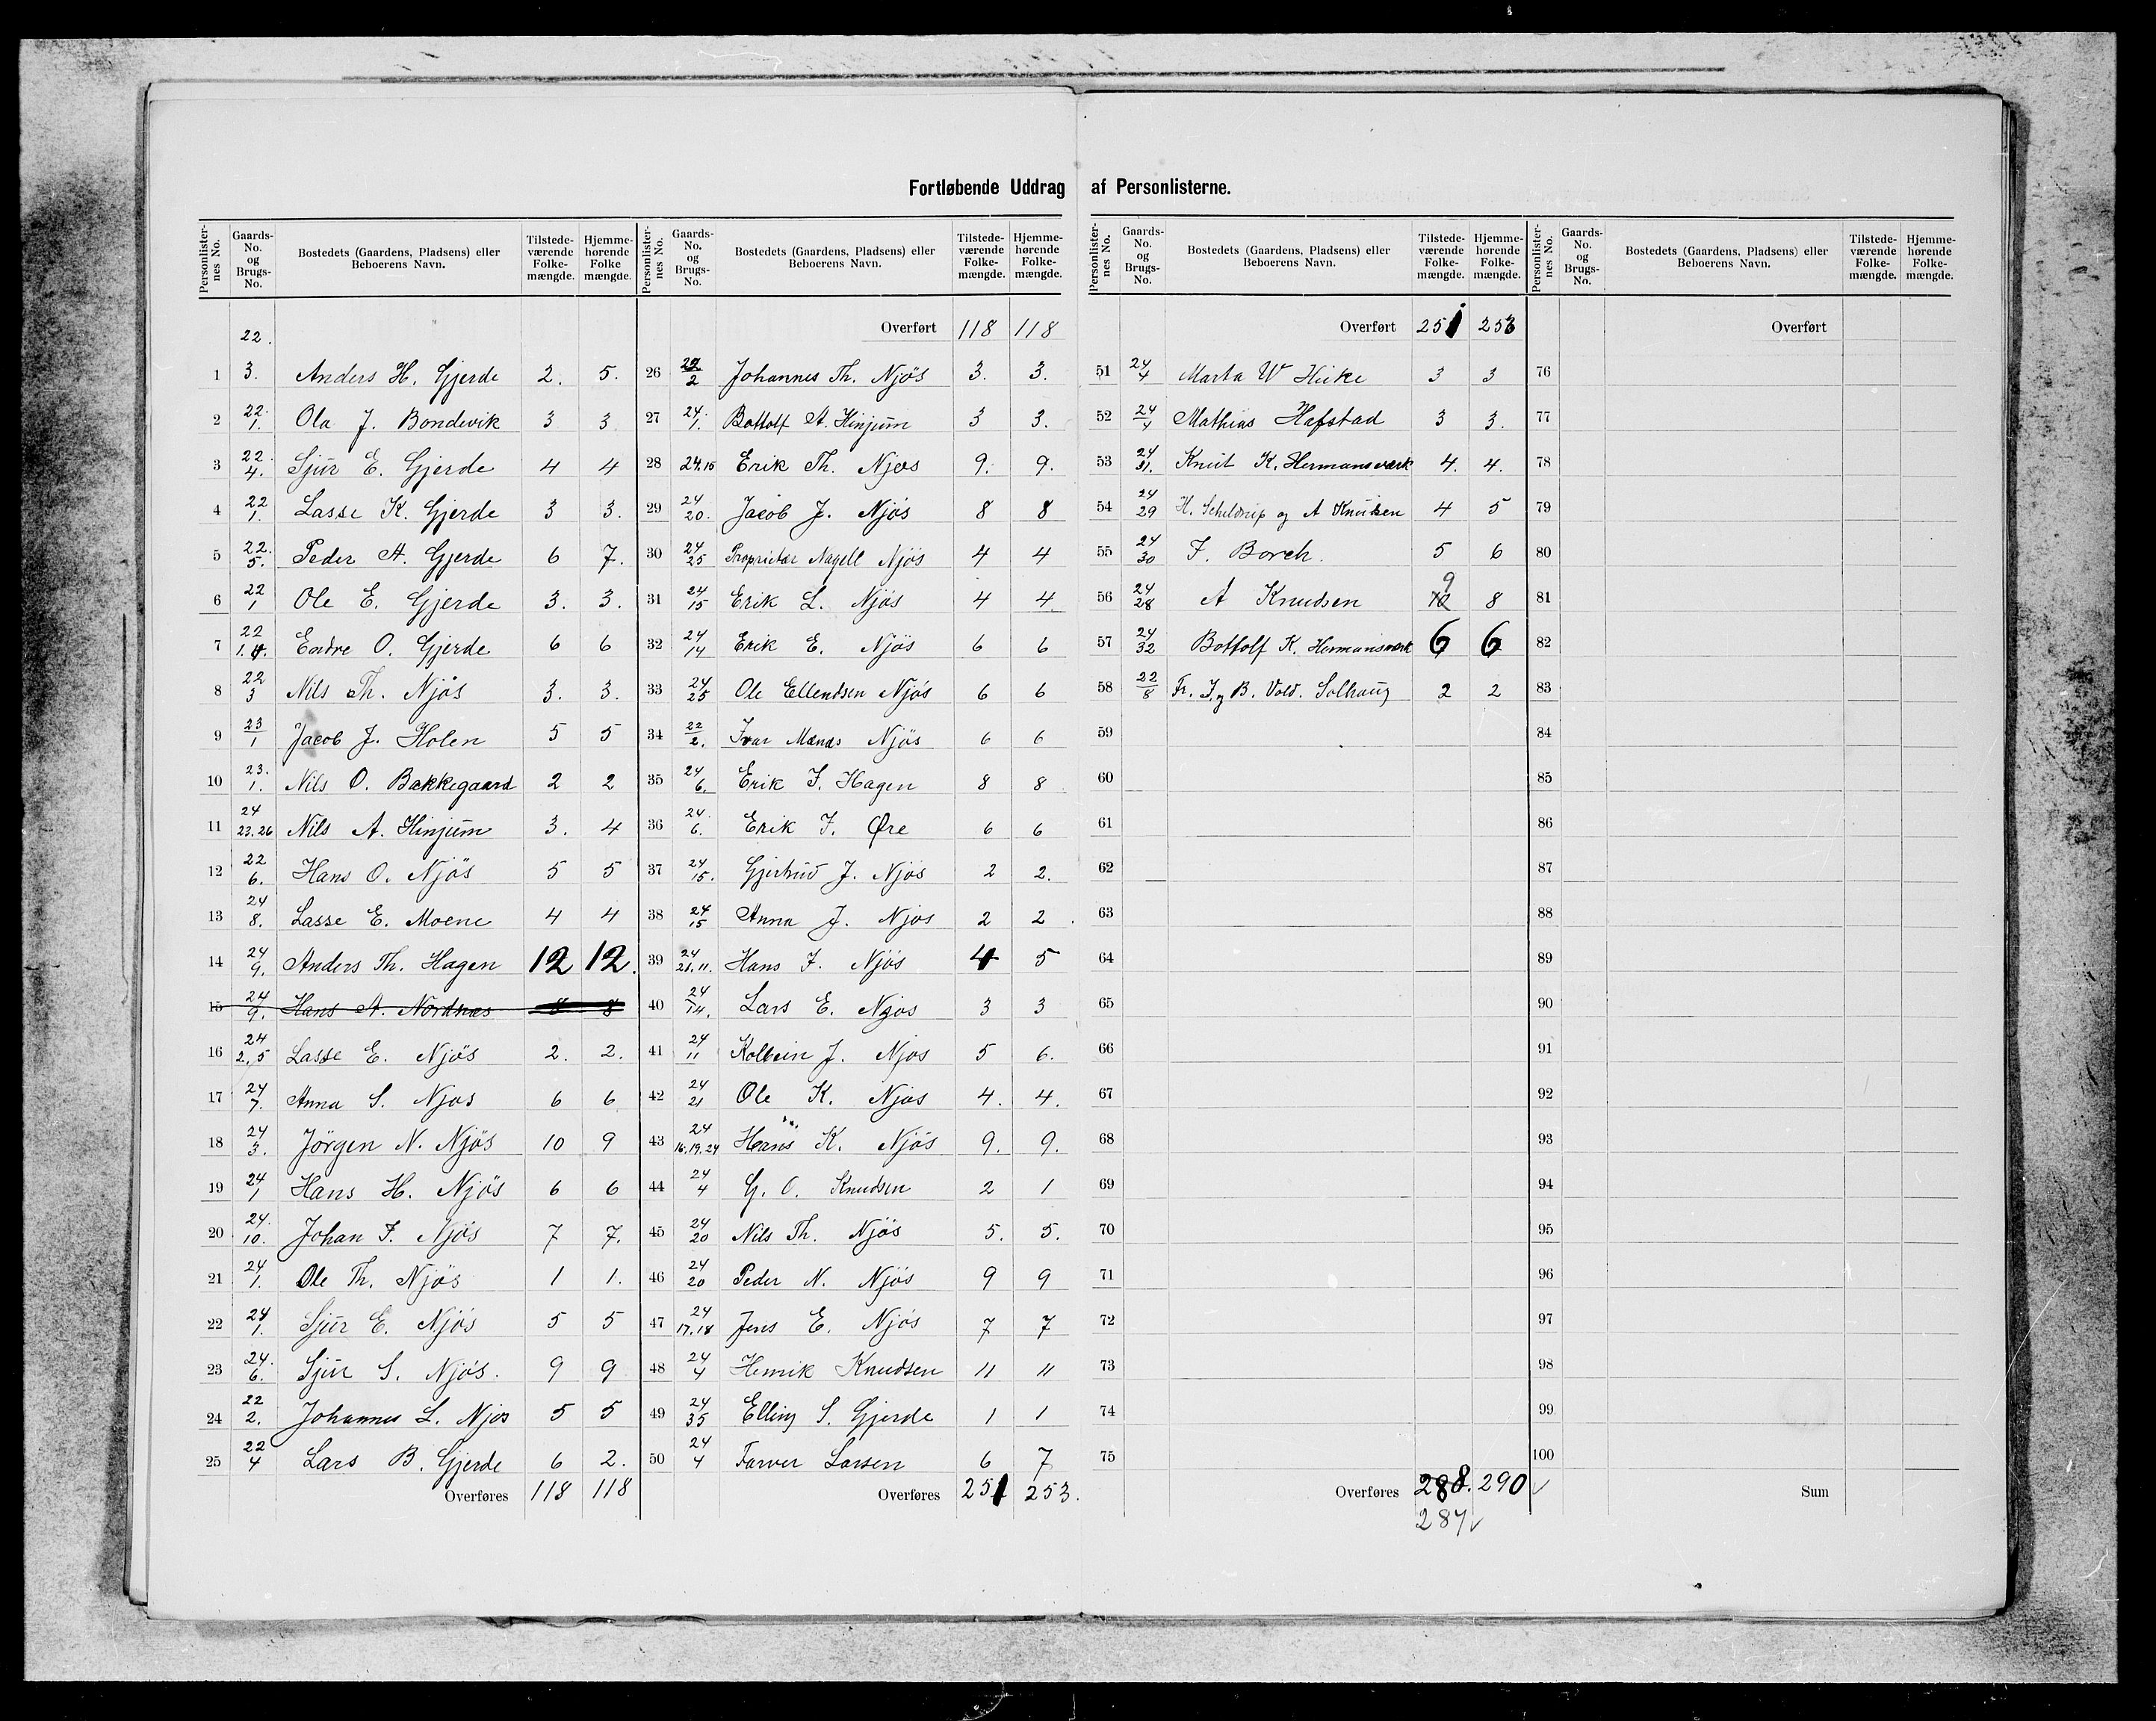 Fortløbende Uddrag af Personlisterne.
Personlisternes No. Gaards-No. og Brugs-No. Bostedets (Gaardens, Pladsens) eller Beboerens Navn. Tilstedeværende Folkemængde. Hjemmehørende Folkemængde.
22.
1 3. Anders H. Gjerde 2. 5.
2 22. 1. Ola J. Bondevik 3 3
3 22. 4. Sjur E. Gjerde 4 4
4 22 1. Lasse K. Gjerde 3 3.
5 22. 5. Peder A. Gjerde 6 7.
6 22 1 Ole E. Gjerde 3. 3.
7 22 1.4. Endre O. Gjerde 6 6
8 22 3 Nils Th. Njøs 3. 3.
9 23 1 Jacob J. Holen 5 5
10 23. 1. Nils O. Bakkegaard 2 2
11 24 23.26 Nils A. Hinjum 3. 4
12 22 6. Hans O. Njös 5 5
13 24 8. Lasse E. Moene 4 4
14 24 9. Anders Th. Hagen 12 12.
15 24 9. Hans A. Nordnæs 8 8
16 24 2.5 Lasse E. Njös 2. 2.
17 24 7. Anna S. Njos 6 6
18 24 3. Jörgen N. Njös 10 9
19 24 1 Hans H. Njös 6 6
20 24. 10. Johan J. Njös 7 7.
21 24 1. Ole Th. Njös 1 1.
22 24 1. Sjur E. Njös 5 5
23 24. 6. Sjur S. Njös. 9 9
24 22 2. Johannes L. Njos 5 5
25 22 4 Lars B. Gjerde 6 2.
Overføres 118 118
Personlisternes No. Gaards-No. og Brugs-No. Bostedets (Gaardens, Pladsens) eller Beboerens Navn. Tilstedeværende Folkemængde. Hjemmehørende Folkemængde.
Overført 118 118
26 22 2 Johannes Th. Njös 3. 3.
27 24. 1. Bottolf A. Hinjum 3 3.
28 24.15 Erik Th. Njøs 9. 9.
29 24 20. Jacob J. Njös 8 8
30 24 25 Proprietær Nagell Njös 4 4
31 24 15 Erik L. Njös 4 4
32 24 14 Erik E. Njös 6 6
33 24 25 Ole Ellendsen Njös 6 6
34 22 2. Ivar Monas Njös 6 6
35 24 6. Erik J. Hagen 8 8
36 24. 6. Erik J. Øre 6 6
37 24 15. Gjertrud J. Njös 2 2.
38 24 15 Anna J. Njos 2 2
39 24 21.11. Hans J. Njös 4 5
40 24 14. Lars E. Njos 3 3
41 24 11 Kolbein J. Njos 5 6.
42 24 21 Ole K. Njös 4. 4.
43 24 16.19.24 Hans K. Njös 9. 9.
44 24 4 G. O. Knudsen 2 1
45 24 20 Nils Th. Njös 5. 5.
46 24 20 Peder N. Njös 9 9
47 24 17.18 Jens E. Njös 7 7
48 24 4 Henrik Knudsen 11 11
49 24 35 Elling S. Gjerde 1 1
50 24 4 Farver Larsen 6 7
Overføres 251 253.
Personlisternes No. Gaards-No. og Brugs-No. Bostedets (Gaardens, Pladsens) eller Beboerens Navn. Tilstedeværende Folkemængde. Hjemmehørende Folkemængde.
Overført 251 253
51 24 4 Marta W 3 3
52 24 4 Mathias Hafstad 3 3.
53 24 31. Knut K. Hermansværk 4. 4.
54 24 29 H. Scheldrup og A Knudsen 4 5
55 24 30 F. Borch. 5 6
56 24 28 A Knudsen 10 9 8
57 24 32 Bottolf K. Hermansværk 6 6
58 22 8 Fr. J. og B. Vold. Solhaug 2 2
59
60
61
62
63
64
65
66
67
68
69
70
71
72
73
74
75
Overføres 288. 290 ✓
287 ✓
Personlisternes No. Gaards-No. og Brugs-No. Bostedets (Gaardens, Pladsens) eller Beboerens Navn. Tilstedeværende Folkemængde. Hjemmehørende Folkemængde.
Overført
76
77
78
79
80
81
82
83
84
85
86
87
88
89
90
91
92
93
94
95
96
97
98
99
100
Sum